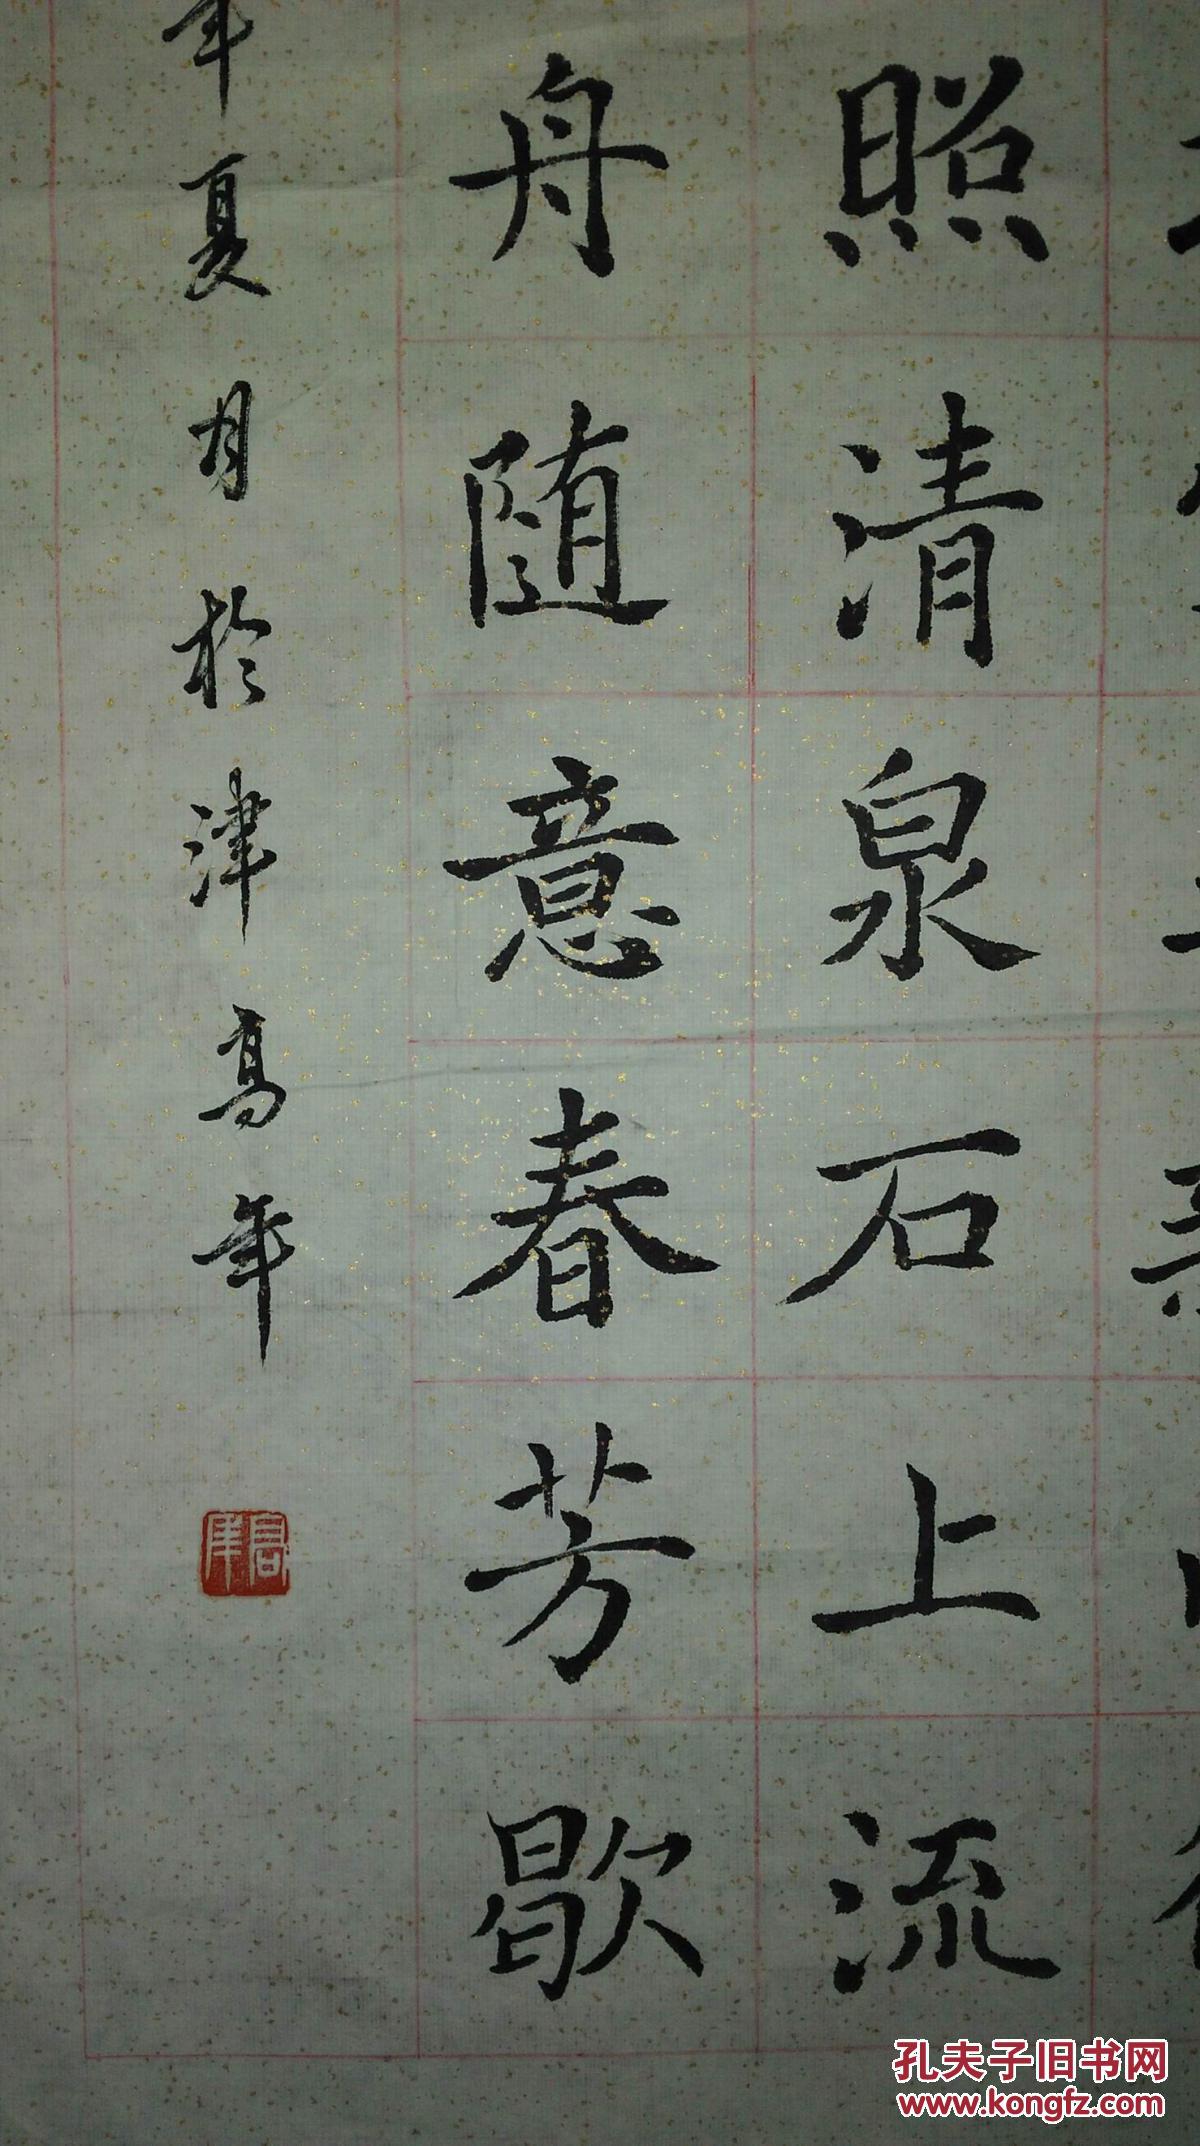 照清泉石上流
舟随意春芳歇
年夏月於津高年
孔夫子旧书网
www.kongfz.com